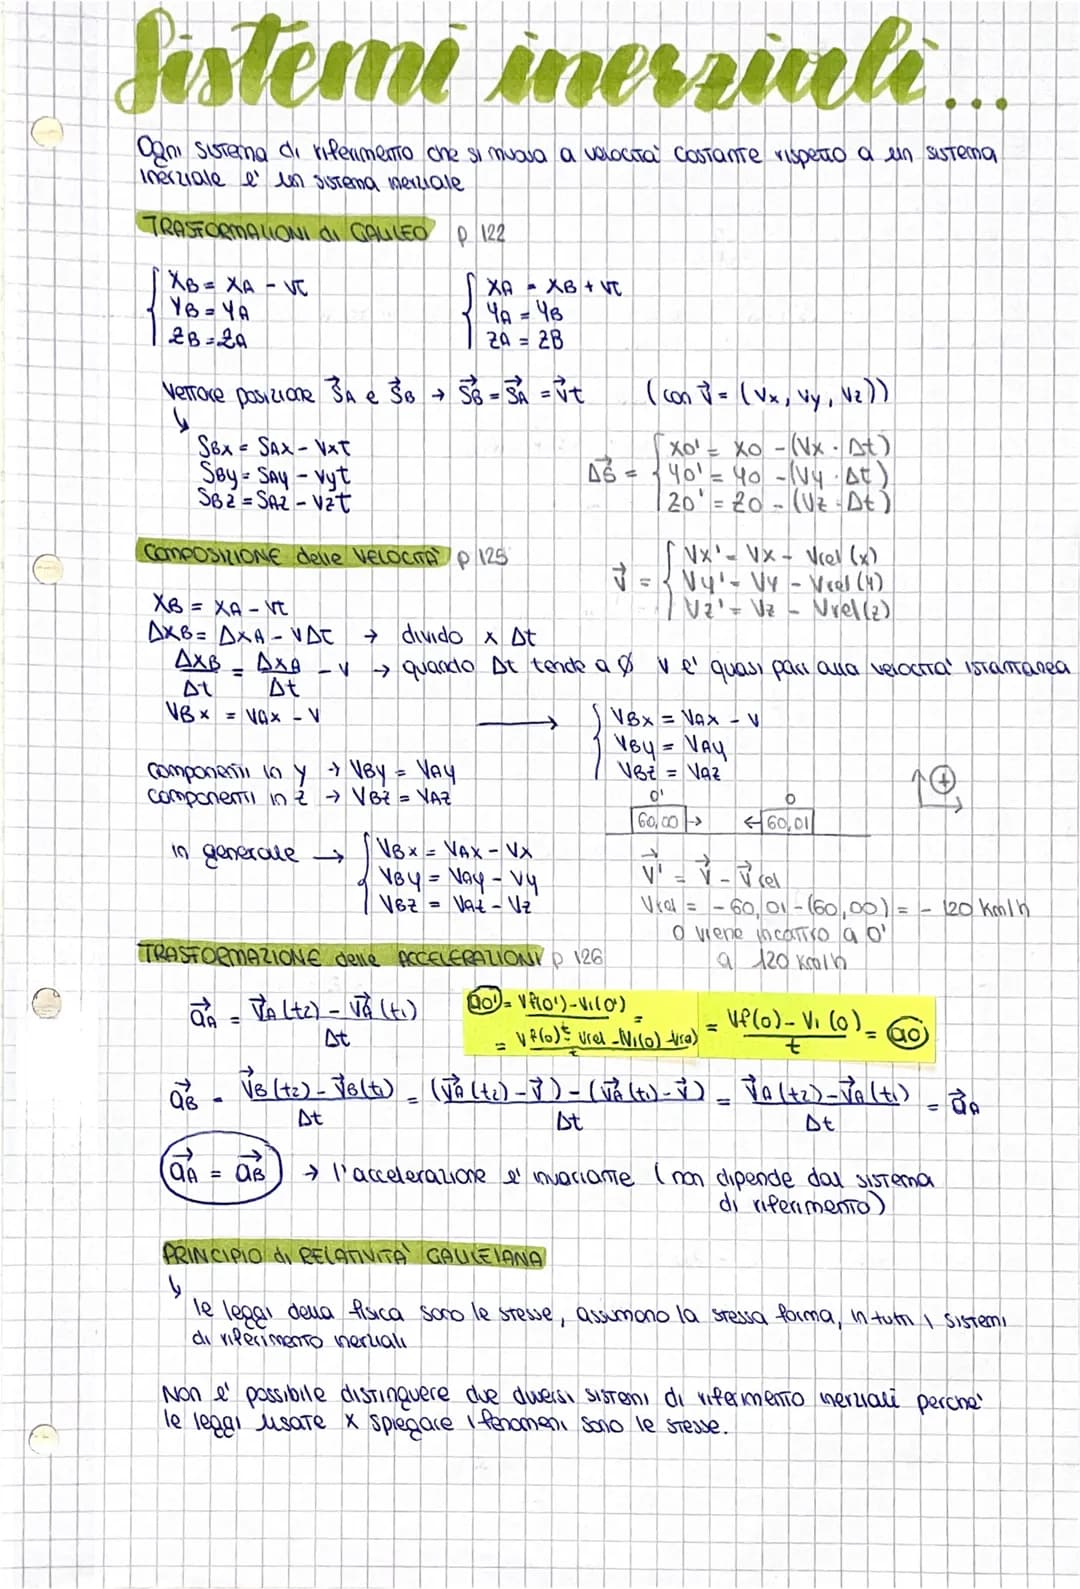 Sistemi inerziali...
Ogni sistema di riferimento che si muova a velocità costante rispetto a un sistema
inerziale è un sistema inerziale
TRASFORMAZIONI di GALILEO p 122
XB = XA - vt
YB = YA
ZB = ZA
XA = XB + vt
YA = YB
ZA = ZB
Vettore posizione S⃗A e S⃗B → S⃗B = S⃗A = v⃗t (con v⃗ = (vx, vy, vz))
SBx = SAx - vxt
SBy = SAy - vyt
SBz = SAz - vzt
ΔS⃗ =
XO' = XO - (Vx · Δt)
YO' = YO - (Vy · Δt)
ZO' = ZO - (Vz · Δt)
COMPOSIZIONE delle VELOCITÀ p 125
v⃗ =
Vx' = Vx - Vrel (x)
Vy' = Vy - Vrel (y)
Vz' = Vz - Vrel (z)
XB = XA - vt
ΔXB = ΔXA - VΔt → divido x Δt
ΔXB/Δt = ΔXA/Δt - v → quando Δt tende a Ø v è quasi pari alla velocità istantanea
VBx = VAx - V →
VBx = VAx - V
VBy = VAy
VBz = VAz
componenti in y → VBy = VAy
componenti in z → VBz = VAz
+
O' O
60,00 → ← 60,01
in generale →
VBx = VAx - Vx
VBy = VAy - Vy
VBz = VAz - Vz
V⃗' = V⃗ - V⃗rel
Vrel = -60,01 - (60,00) = - 120 km/h
O viene incontro a O'
a 120 km/h
TRASFORMAZIONE delle ACCELERAZIONI p 126
a⃗A = (V⃗A (t2) - V⃗A (t1))/Δt
aO' = (Vf(O') - Vi(O'))/t =
= (Vf(O) - Vrel - (Vi(O) - Vrel))/t = (Vf(O) - Vi (O))/t = aO
a⃗B = (V⃗B (t2) - V⃗B (t1))/Δt = ((V⃗A (t2) - V⃗) - (V⃗A (t1) - V⃗))/Δt = (V⃗A (t2) - V⃗A (t1))/Δt = a⃗A
a⃗A = a⃗B → l'accelerazione è invariante (non dipende dal sistema
di riferimento)
PRINCIPIO di RELATIVITÀ GALILEIANA
le leggi della fisica sono le stesse, assumono la stessa forma, in tutti i sistemi
di riferimento inerziali
Non è possibile distinguere due diversi sistemi di riferimento inerziali perchè
le leggi usate x spiegare i fenomeni sono le stesse.